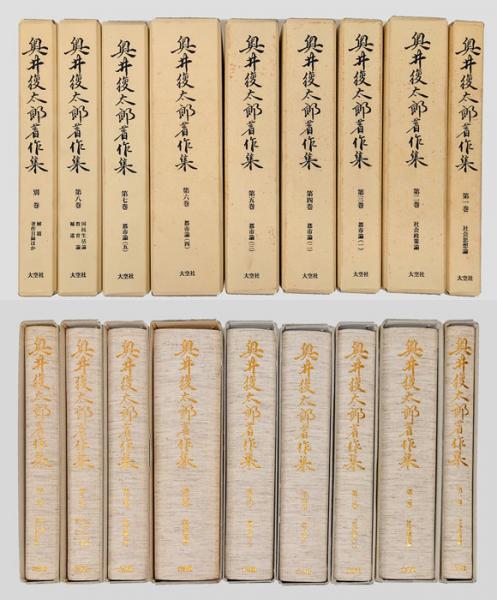 奥井復太郎著作集
第一巻
社会思想論
大空社
奥井復太郎著作集
第二巻
社会政策論
大空社
奥井復太郎著作集
第三巻
都市論(一)
大空社
奥井復太郎著作集
第四巻
都市論(二)
大空社
奥井復太郎著作集
第五巻
都市論(三)
大空社
奥井復太郎著作集
第六巻
都市論(四)
大空社
奥井復太郎著作集
第七巻
都市論(五)
大空社
奥井復太郎著作集
第八巻
国民生活論
教育論
補遺
大空社
奥井復太郎著作集
別巻
解題
著作目録ほか
大空社
奥井復太郎著作集
奥井復太郎著作集
奥井復太郎著作集
奥井復太郎著作集
奥井復太郎著作集
奥井復太郎著作集
奥井復太郎著作集
奥井復太郎著作集
奥井復太郎著作集